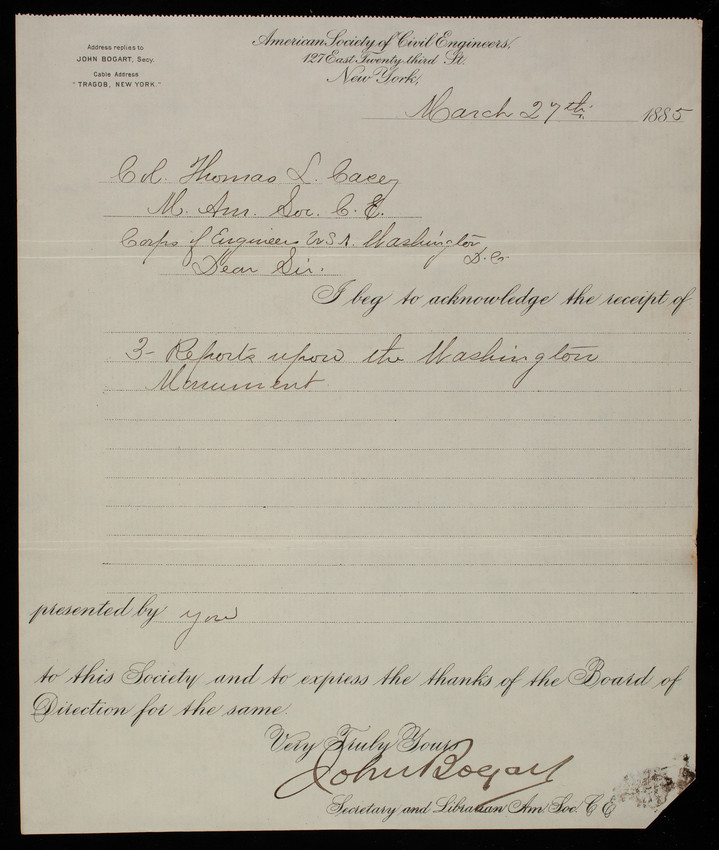 Address replies to
JOHN BOGART, Secy.
Cable Address
"TRAGOB, NEW YORK."
American Society of Civil Engineers,
127 East Twenty third St.
New York,
March 27th 1885
Col. Thomas L. Casey
M. Am. Soc. C. E.
Corps of Engineers U.S.A. Washington
D.C.
Dear Sir.
I beg to acknowledge the receipt of
3 - Reports upon the Washington
Monument
presented by you
to this Society and to express the thanks of the Board of
Direction for the same.
Very Truly Yours
John Bogart
Secretary and Librarian Am. Soc. C E